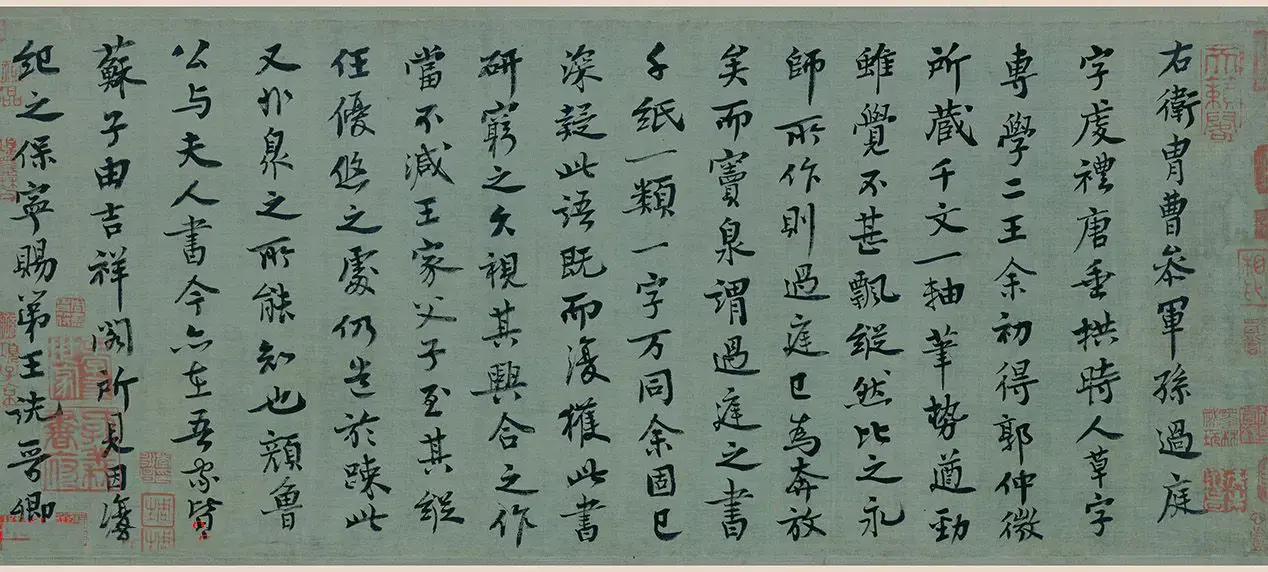 右衛胄曹叅軍孫過庭
字虔禮唐垂拱時人草字
専學二王余初得郭仲微
所蔵千文一軸筆勢遒勁
雖覺不甚飄縱然比之永
師所作則過庭已為奔放
矣而竇臮謂過庭之書
千紙一類一字万同余固已
深疑此語既而復獲此書
研窮之久視其興合之作
當不減王家父子至其縱
任優悠之處仍造於踈此
又非臮之所能知也顔魯
公与夫人書今亦在吾家皆
蘇子由吉祥閣所見因復
紀之保寧賜第王詵晉卿